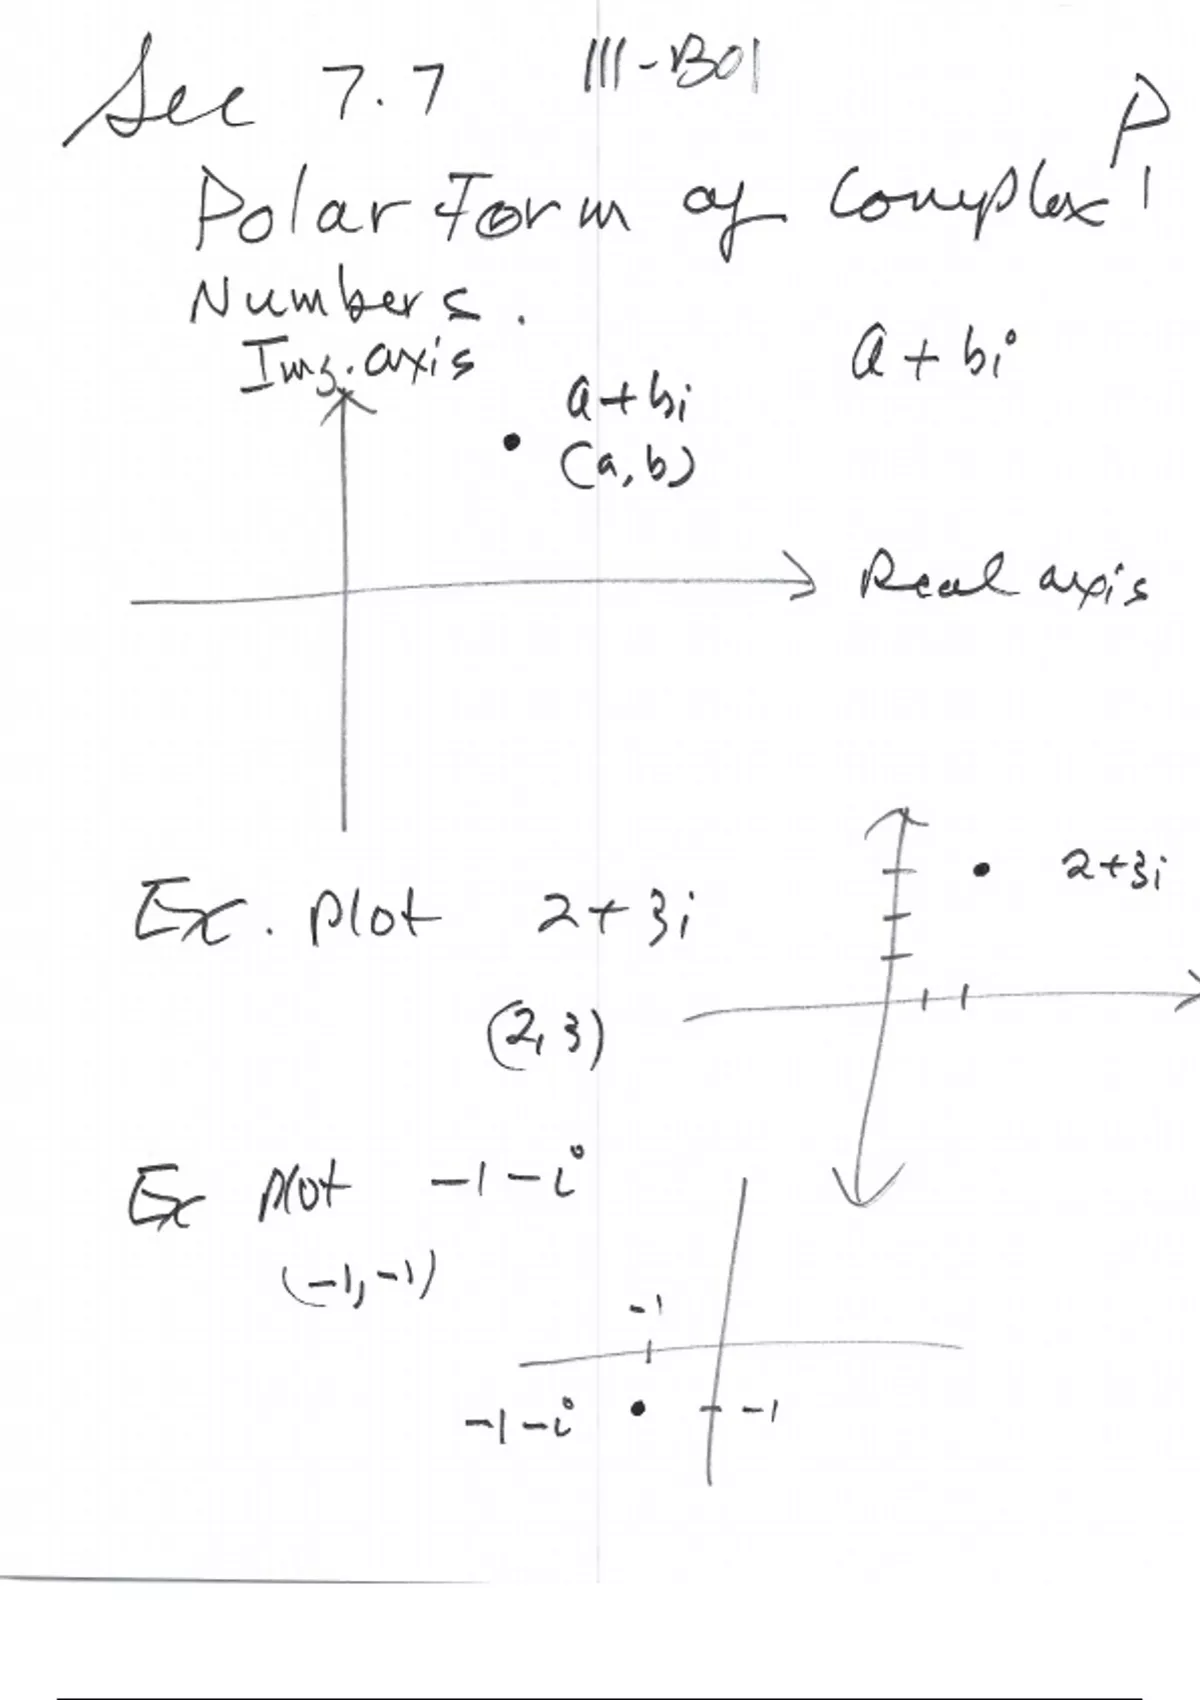 Sec 7.7 111-B01
P1
Polar Form of Complex
Numbers.
Img. axis
a + bi
a+bi
(a, b)
Real axis
2+3i
Ex. plot 2+3i
(2, 3)
Ex plot -1-i
(-1, -1)
-1
-1-i
-1